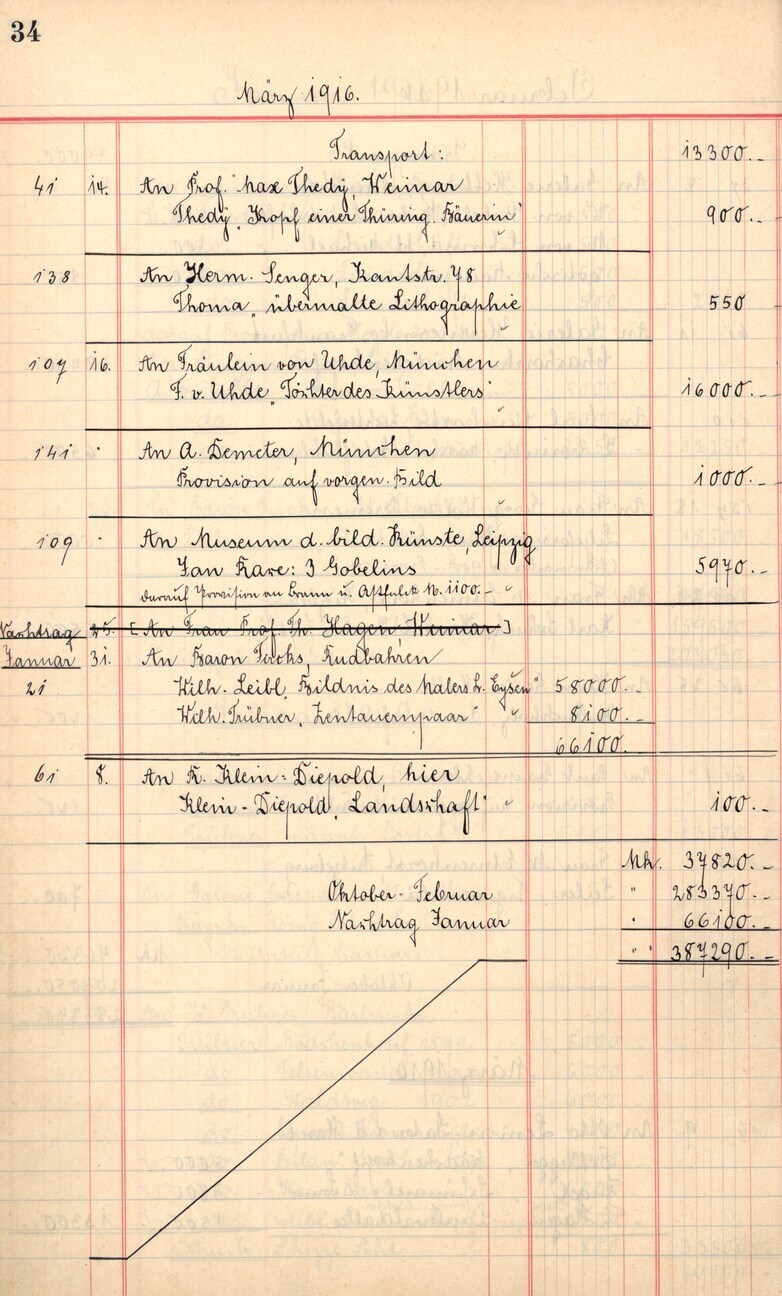 34
März 1916.
Transport: 13300.-
41 14. An Prof. Max Thedÿ, Weimar
Thedÿ „Kopf einer Thüring. Bäuerin" 900.-
138 An Herm. Senger, Kantstr. 78
Thoma „übermalte Lithographie 550
107 16. An Fräulein von Uhde, München
F. v. Uhde „Töchter des Künstlers" 16000.-
141 " An A. Demeter, München
Provision auf vorgen. Bild 1000.-
109 " An Museum d. bild. Künste, Leipzig
Jan Rave: 3 Gobelins 5970.-
darauf Provision an Braun u. M. 1100.-
Nachtrag 25. [An Frau Prof. Th. Hagen, Weimar]
Januar 31. An Baron Fircks, Rudbahren
21 Wilh. Leibl, Bildnis des Malers L. Eysen" 58000.-
Wilh. Trübner, Zentauernpaar" 8100.-
66100.-
61 8. An R. Klein-Diepold, hier
Klein-Diepold, Landschaft" 100.-
Mk. 37820.-
Oktober-Februar " 283370.-
Nachtrag Januar " 66100.-
" 387290.-